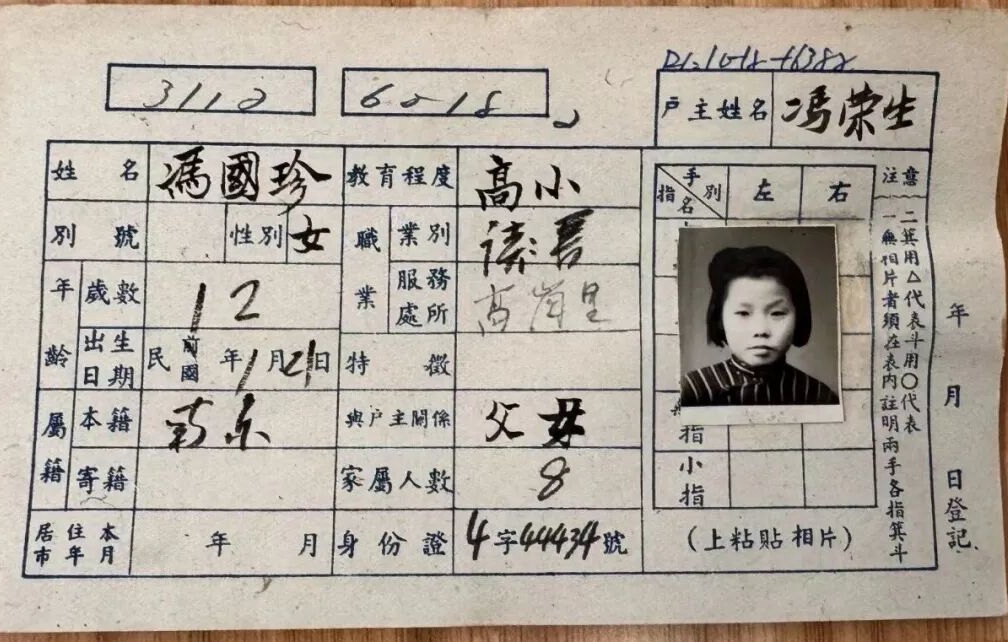 3112
戶主姓名 馮荣生
姓名 馮國珍 教育程度 高小
別號 性別 女 職業 業別 讀書
年齡 歲數 12 服務處所 高崗里
出生日期 民國前 年1月21日 特徵
屬籍 本籍 南京 與戶主關係 父女
寄籍 家屬人數 8
居住本市年月 年 月 身份證 4字44434號
手別 指名 左 右
指
小指
(上粘貼相片)
注意
一無相片者須在表內註明兩手各指箕斗
二箕用△代表斗用○代表
年 月 日登記